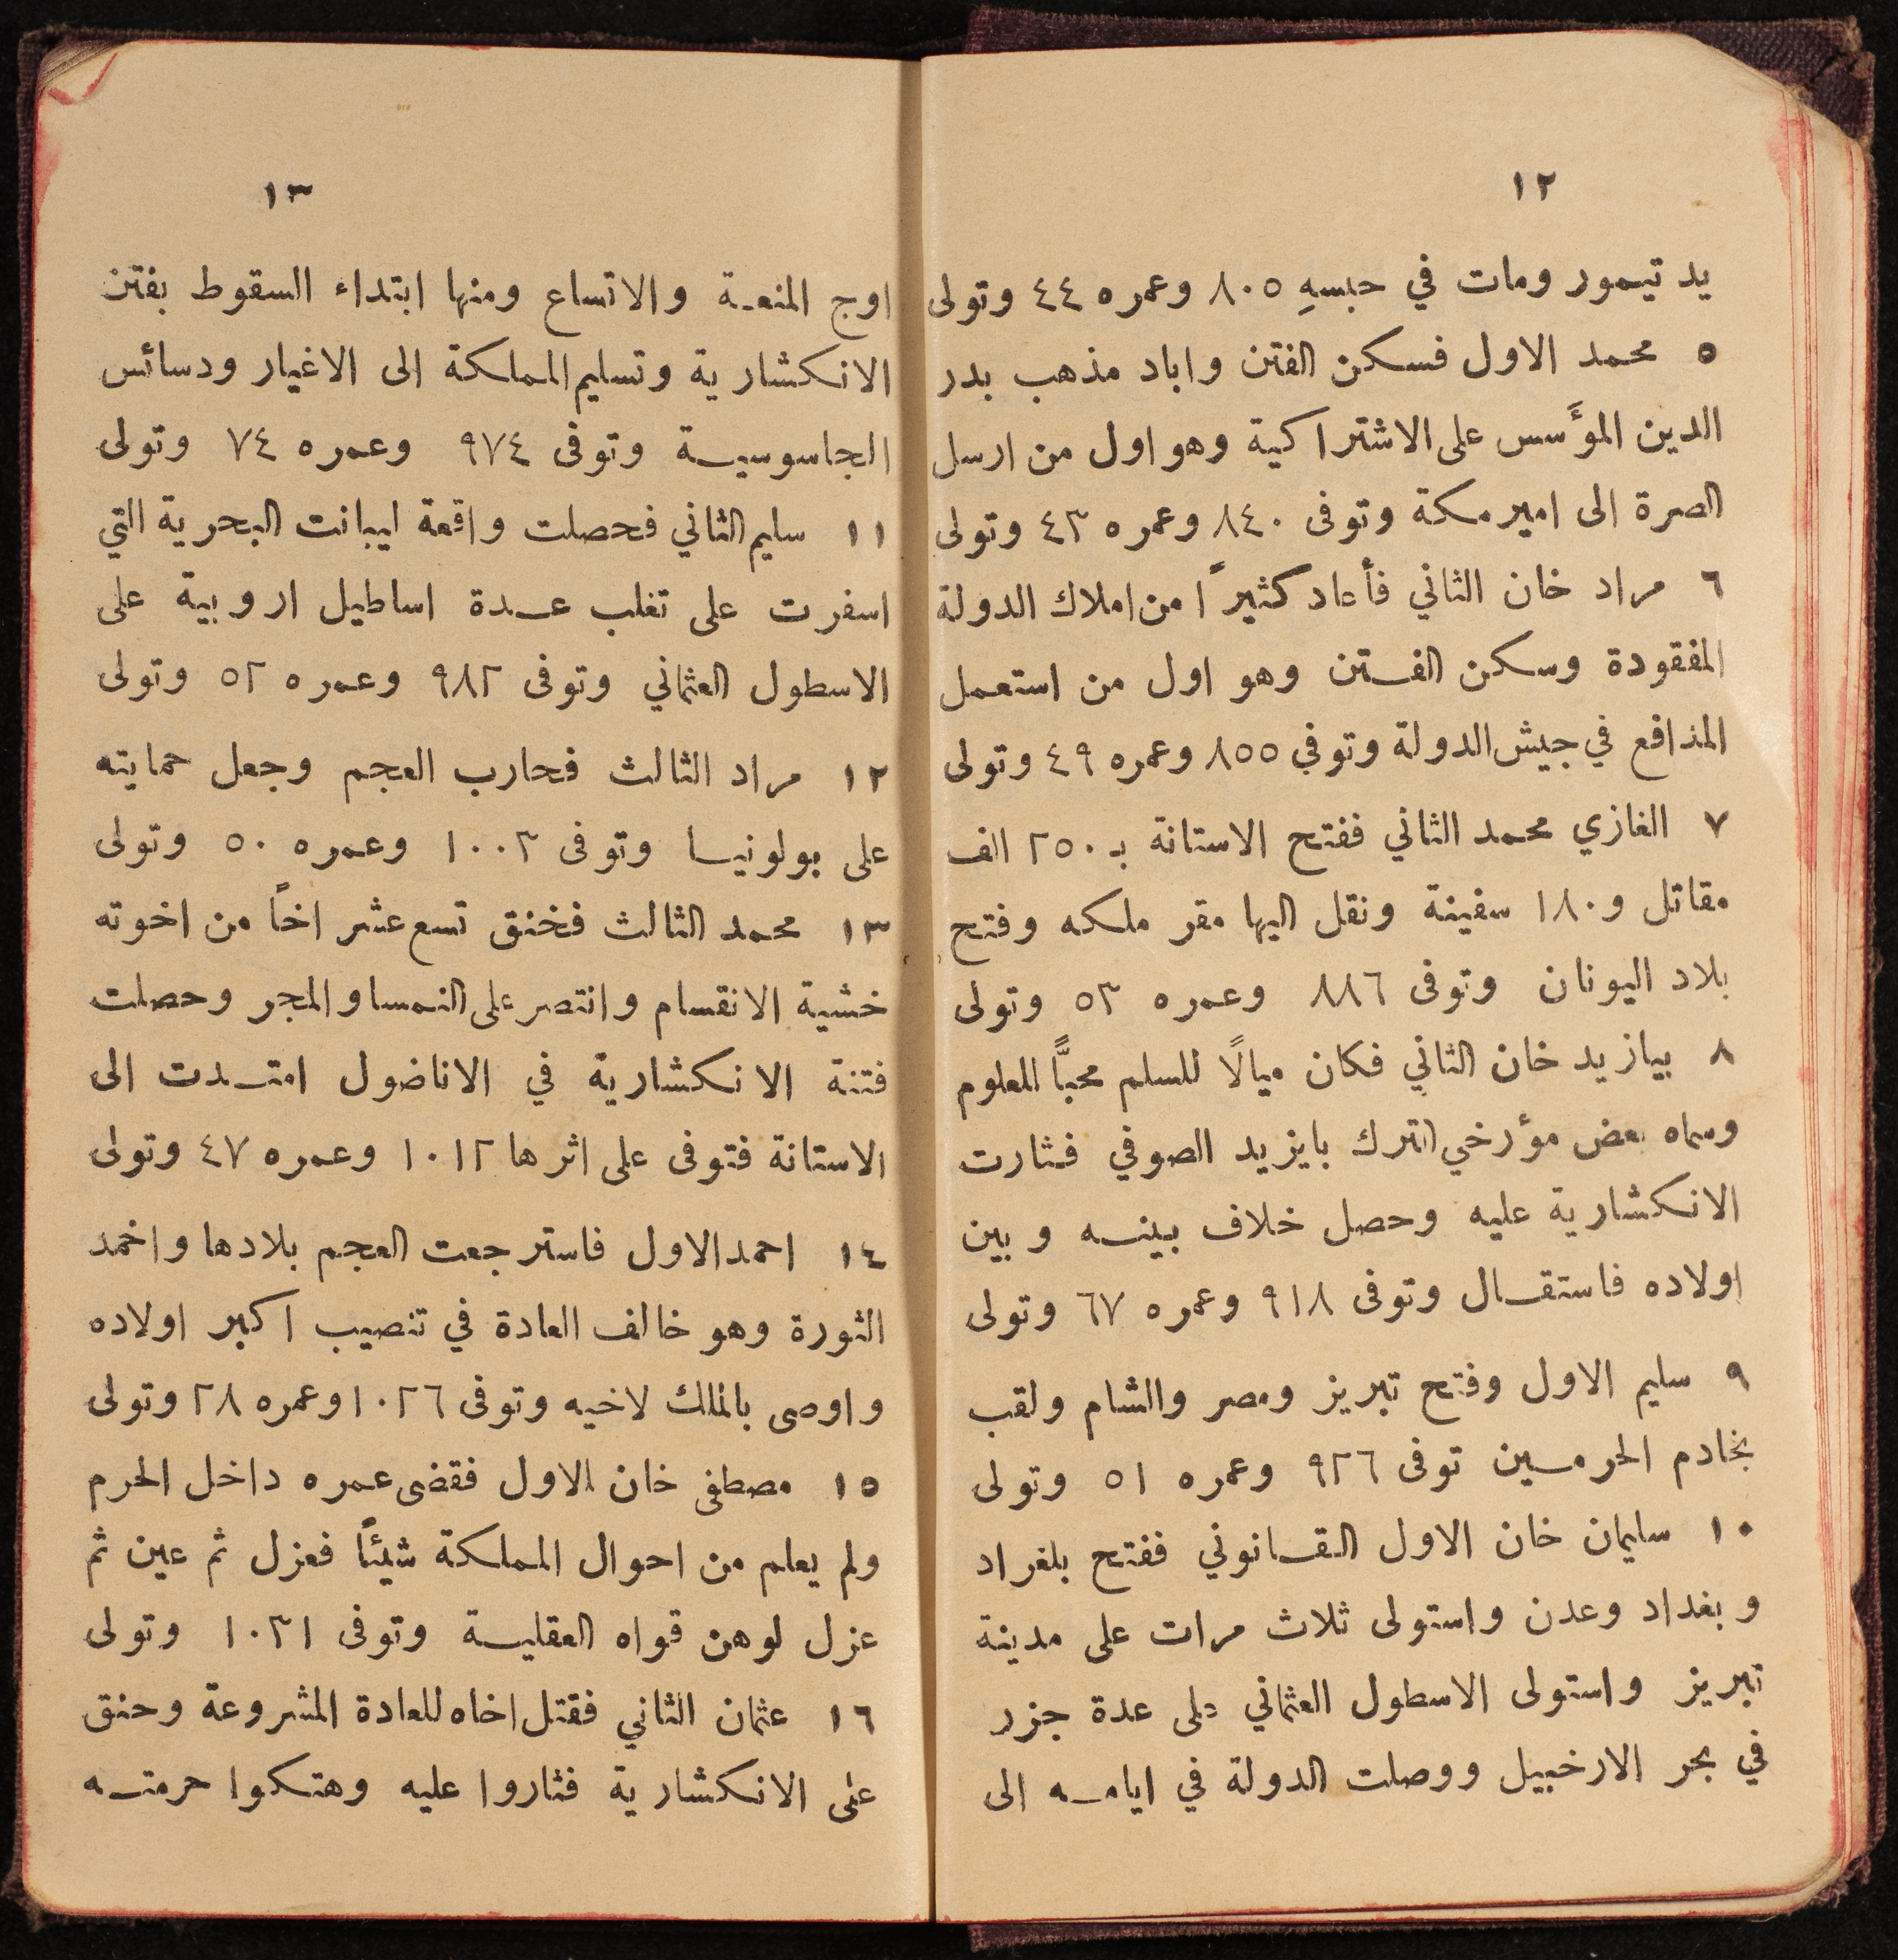 ١٢
يد تيمور ومات في حبسهِ ٨٠٥ وعمره ٤٤ وتولى
٥ محمد الاول فسكن الفتن واباد مذهب بدر
الدين المؤَسس على الاشتراكية وهو اول من ارسل
الصرة الى امير مكة وتوفى ٨٤٠ وعمره ٤٣ وتولى
٦ مراد خان الثاني فأعاد كثيراً من املاك الدولة
المفقودة وسكن الفتن وهو اول من استعمل
المدافع في جيش الدولة وتوفي ٨٥٥ وعمره ٤٩ وتولى
٧ الغازي محمد الثاني ففتح الاستانة بـ ٢٥٠ الف
مقاتل و١٨٠ سفينة ونقل اليها مقر ملكه وفتح
بلاد اليونان وتوفى ٨٨٦ وعمره ٥٣ وتولى
٨ بيازيد خان الثاني فكان ميالًا للسلم محبًّا للعلوم
وسماه بعض مؤرخي الترك بايزيد الصوفي فثارت
الانكشارية عليه وحصل خلاف بينه وبين
اولاده فاستقال وتوفى ٩١٨ وعمره ٦٧ وتولى
٩ سليم الاول وفتح تبريز ومصر والشام ولقب
بخادم الحرمين توفى ٩٢٦ وعمره ٥١ وتولى
١٠ سليمان خان الاول القانوني ففتح بلغراد
وبغداد وعدن واستولى ثلاث مرات على مدينة
تبريز واستولى الاسطول العثماني على عدة جزر
في بحر الارخبيل ووصلت الدولة في ايامه الى
١٣
اوج المنعة والاتساع ومنها ابتداء السقوط بفتن
الانكشارية وتسليم المملكة الى الاغيار ودسائس
الجاسوسية وتوفى ٩٧٤ وعمره ٧٤ وتولى
١١ سليم الثاني فحصلت واقعة ليبانت البحرية التي
اسفرت على تغلب عدة اساطيل اروبية على
الاسطول العثماني وتوفى ٩٨٢ وعمره ٥٢ وتولى
١٢ مراد الثالث فحارب العجم وجعل حمايته
على بولونيا وتوفى ١٠٠٣ وعمره ٥٠ وتولى
١٣ محمد الثالث فخنق تسع عشر اخاً من اخوته
خشية الانقسام وانتصر على النمسا والمجر وحصلت
فتنة الانكشارية في الاناضول امتدت الى
الاستانة فتوفى على اثرها ١٠١٢ وعمره ٤٧ وتولى
١٤ احمد الاول فاسترجعت العجم بلادها واخمد
الثورة وهو خالف العادة في تنصيب اكبر اولاده
واوصى بالملك لاخيه وتوفى ١٠٢٦ وعمره ٢٨ وتولى
١٥ مصطفى خان الاول فقضى عمره داخل الحرم
ولم يعلم من احوال المملكة شيئاً فعزل ثم عين ثم
عزل لوهن قواه العقلية وتوفى ١٠٣١ وتولى
١٦ عثمان الثاني فقتل اخاه للعادة المشروعة وحنق
على الانكشارية فثاروا عليه وهتكوا حرمته